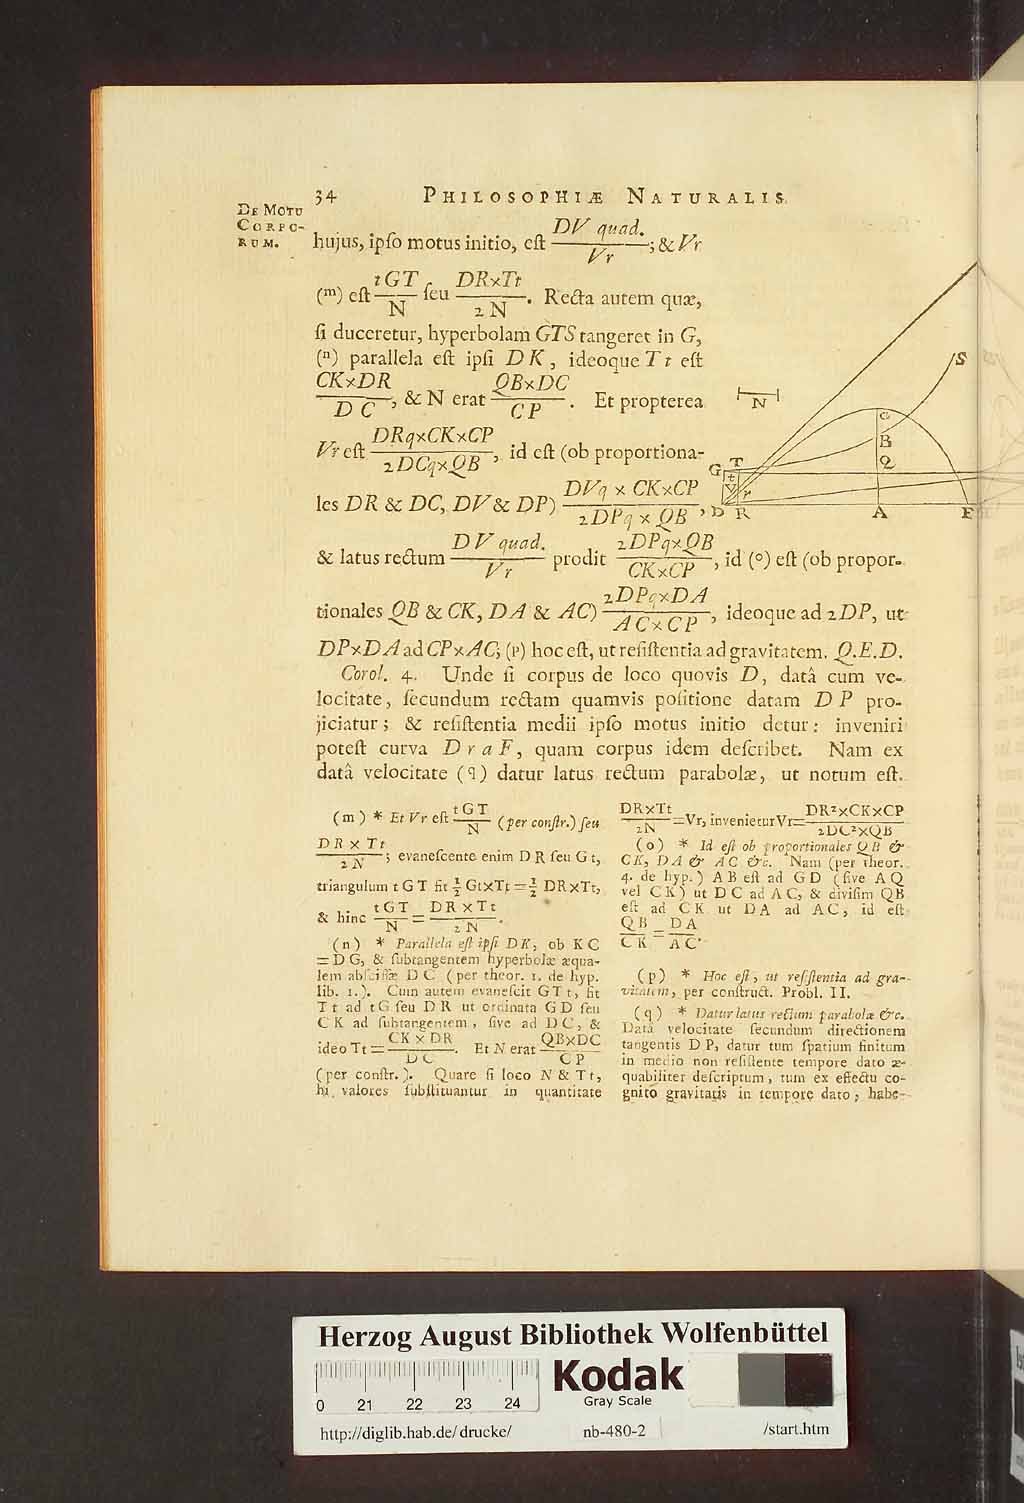 34 PHILOSOPHIÆ NATURALIS.
DE MOTU
CORPO-
RUM.
hujus, ipſo motus initio, eſt DV quad. / Vr ; & Vr
(m) eſt tGT / N ſeu DR×Tt / 2N . Recta autem quæ,
ſi duceretur, hyperbolam GTS tangeret in G,
(n) parallela eſt ipſi DK, ideoque Tt eſt
CK×DR / DC , & N erat QB×DC / CP . Et propterea
Vr eſt DRq×CK×CP / 2DCq×QB , id eſt (ob proportiona-
les DR & DC, DV & DP) DVq × CK×CP / 2DPq × QB ,
& latus rectum DV quad. / Vr prodit 2DPq×QB / CK×CP , id (o) eſt (ob propor-
tionales QB & CK, DA & AC) 2DPq×DA / AC×CP , ideoque ad 2DP, ut
DP×DA ad CP×AC; (p) hoc eſt, ut reſiſtentia ad gravitatem. Q.E.D.
Corol. 4. Unde ſi corpus de loco quovis D, datâ cum ve-
locitate, ſecundum rectam quamvis poſitione datam DP pro-
jiciatur; & reſiſtentia medii ipſo motus initio detur: inveniri
poteſt curva DraF, quam corpus idem deſcribet. Nam ex
datâ velocitate (q) datur latus rectum parabolæ, ut notum eſt.
N
S
a
B
Q
G T
t
V r
D R A F
(m) * Et Vr eſt tGT / N (per conſtr.) ſeu
DR × Tt / 2N ; evaneſcente enim DR ſeu Gt,
triangulum tGT fit ½ Gt×Tt = ½ DR×Tt,
& hinc tGT / N = DR×Tt / 2N .
(n) * Parallela eſt ipſi DK, ob KC
= DG, & ſubtangentem hyperbolæ æqua-
lem abſciſſæ DC (per theor. 1. de hyp.
lib. 1.). Cum autem evaneſcit GTt, fit
Tt ad tG ſeu DR ut ordinata GD ſeu
CK ad ſubtangentem, ſive ad DC, &
ideo Tt = CK × DR / DC . Et N erat QB×DC / CP
(per conſtr.). Quare ſi loco N & Tt,
hi valores ſubſtituantur in quantitate
DR×Tt / 2N = Vr, invenietur Vr = DR²×CK×CP / 2DC²×QB
(o) * Id eſt ob proportionales QB &
CK, DA & AC &c. Nam (per theor.
4. de hyp.) AB eſt ad GD (ſive AQ
vel CK) ut DC ad AC, & diviſim QB
eſt ad CK ut DA ad AC, id eſt
QB / CK = DA / AC .
(p) * Hoc eſt, ut reſiſtentia ad gra-
vitatem, per conſtruct. Probl. II.
(q) * Datur latus rectum parabolæ &c.
Datâ velocitate ſecundum directionem
tangentis DP, datur tum ſpatium finitum
in medio non reſiſtente tempore dato æ-
quabiliter deſcriptum, tum ex effectu co-
gnito gravitatis in tempore dato, habe-
Herzog August Bibliothek Wolfenbüttel
Kodak
Gray Scale
0 21 22 23 24
http://diglib.hab.de/drucke/ nb-480-2 /start.htm